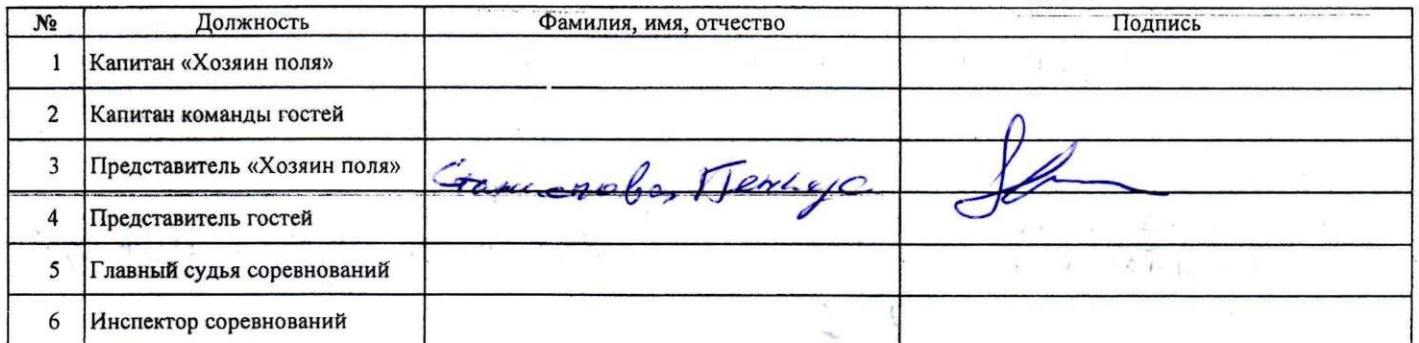 № Должность Фамилия, имя, отчество Подпись
1 Капитан «Хозяин поля»
2 Капитан команды гостей
3 Представитель «Хозяин поля»
4 Представитель гостей
5 Главный судья соревнований
6 Инспектор соревнований